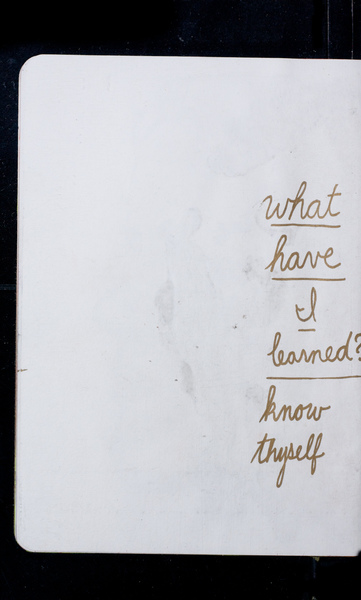 what
have
I
learned?
know
thyself